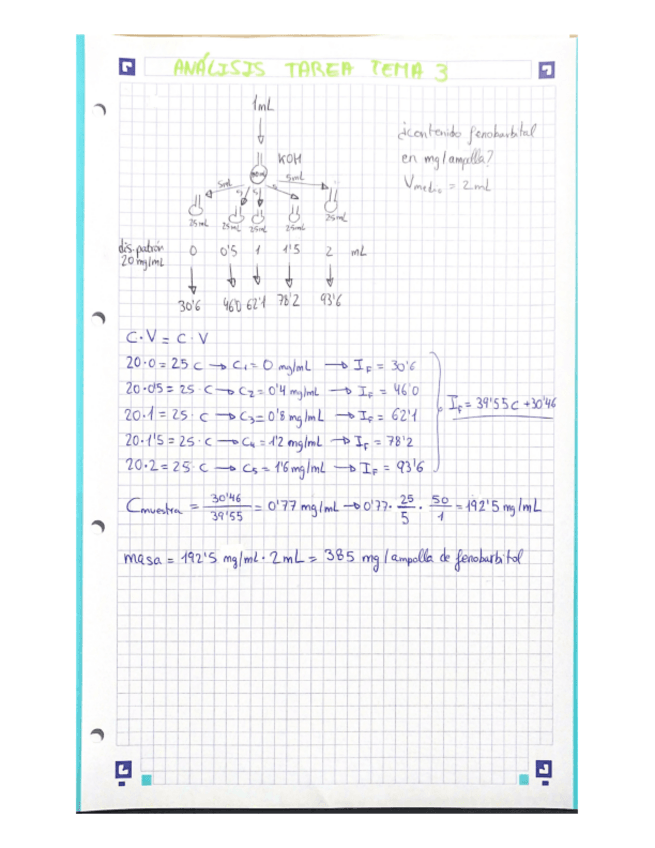 ANÁLISIS TAREA TEMA 3
1mL
¿contenido fenobarbital
en mg/ampolla?
Vmedio = 2mL
KOH
50mL
5mL 5 5 5 5mL
25mL 25mL 25mL 25mL 25mL
dis. patrón 0 0'5 1 1'5 2 mL
20 mg/mL
30'6 46'0 62'1 78'2 93'6
C·V = C·V
20·0 = 25 C → C₁ = 0 mg/mL → I_F = 30'6
20·0'5 = 25·C → C₂ = 0'4 mg/mL → I_F = 46'0
20·1 = 25·C → C₃ = 0'8 mg/mL → I_F = 62'1
20·1'5 = 25·C → C₄ = 1'2 mg/mL → I_F = 78'2
20·2 = 25·C → C₅ = 1'6 mg/mL → I_F = 93'6
I_F = 39'55 C + 30'46
Cmuestra = 30'46/39'55 = 0'77 mg/mL → 0'77 · 25/5 · 50/1 = 192'5 mg/mL
masa = 192'5 mg/mL · 2 mL = 385 mg/ampolla de fenobarbitol